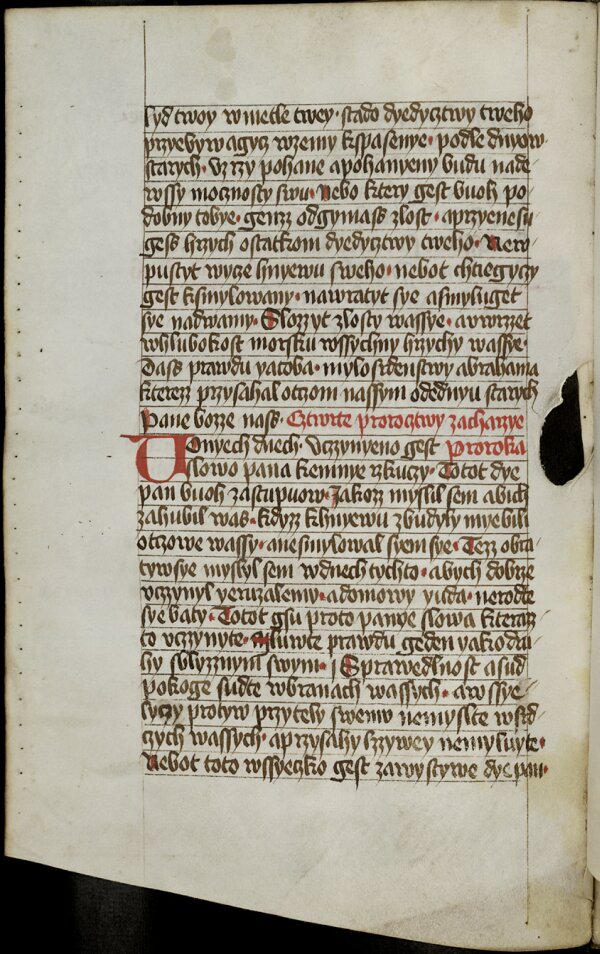 lyd twoy w mietle twey · stado dyedyztwy tweho
przyebywagycz wzemy k spasenye · podle dnyow
starych · Vzrzy pohane a pohanyeny budu nade
wssy mocznosty swu · Nebo ktery gest buoh po
dobny tobye · genzz odgymass zlost · a przyenesu
gess hrzych ostatkom dyedyztwy tweho · New
pustyt wycze hnyewu sweho · nebot chtiegyczy
gest k smylowany · nawratyt sye a smyluget
sye nad wamy · Slozzyt zlosty wassye · a uwrzet
w hlubokost morsku wssychny hrzychy wassye ·
Dass prawdu yacoba · mylosrdenstwy abrahama
kterezz przysahal otczom nassym ode dnyu starych
Pane bozze nass · Cztwrte proroctwy zacharzye
W Onyech dnech · Vczynyeno gest Proroka
slowo pana ke mnye rzkuczy · Totot dye
pan buoh zastupuow · Jakozz myslil sem abich
zahubil was · kdyzz k hnyewu zbudyly mye bili
otczowe wassy · a nesmylowal syem sye · Tezz obra
tyw sye myslyl sem w dnech tychto · abych dobrze
vczynyl yeruzalemy · a domowy yuda · nerodte
sye baty · Totot gsu proto panye slowa kterazz
to vczynyte · mluwte prawdu geden yako dru
hy s blyzznym swym · j Sprawedlnost a sud
pokoge sudte w branach wassych · a wssye
lyczy protyw przytely swemu nemyslte w srd
czych wassych · a przysahy lzzywey nemyluyte ·
Nebot toto wssyeczko gest zawystywe dye pan ·